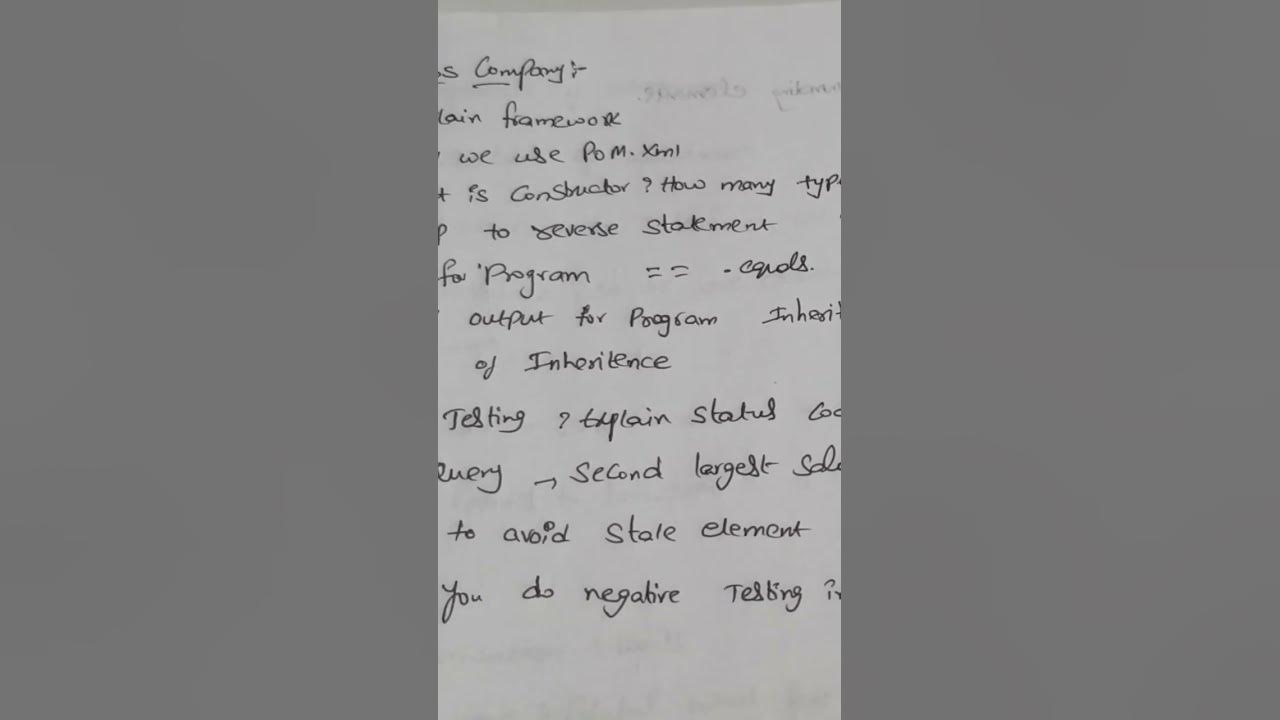 s Company:-
lain framework
we use POM.xml
t is Constructor ? How many typ
P to reverse statement
for Program == .equals.
output for Program Inherit
of Inheritence
Testing ? Explain Status Cod
Query → Second largest Sala
to avoid Stale element
You do negative Testing in